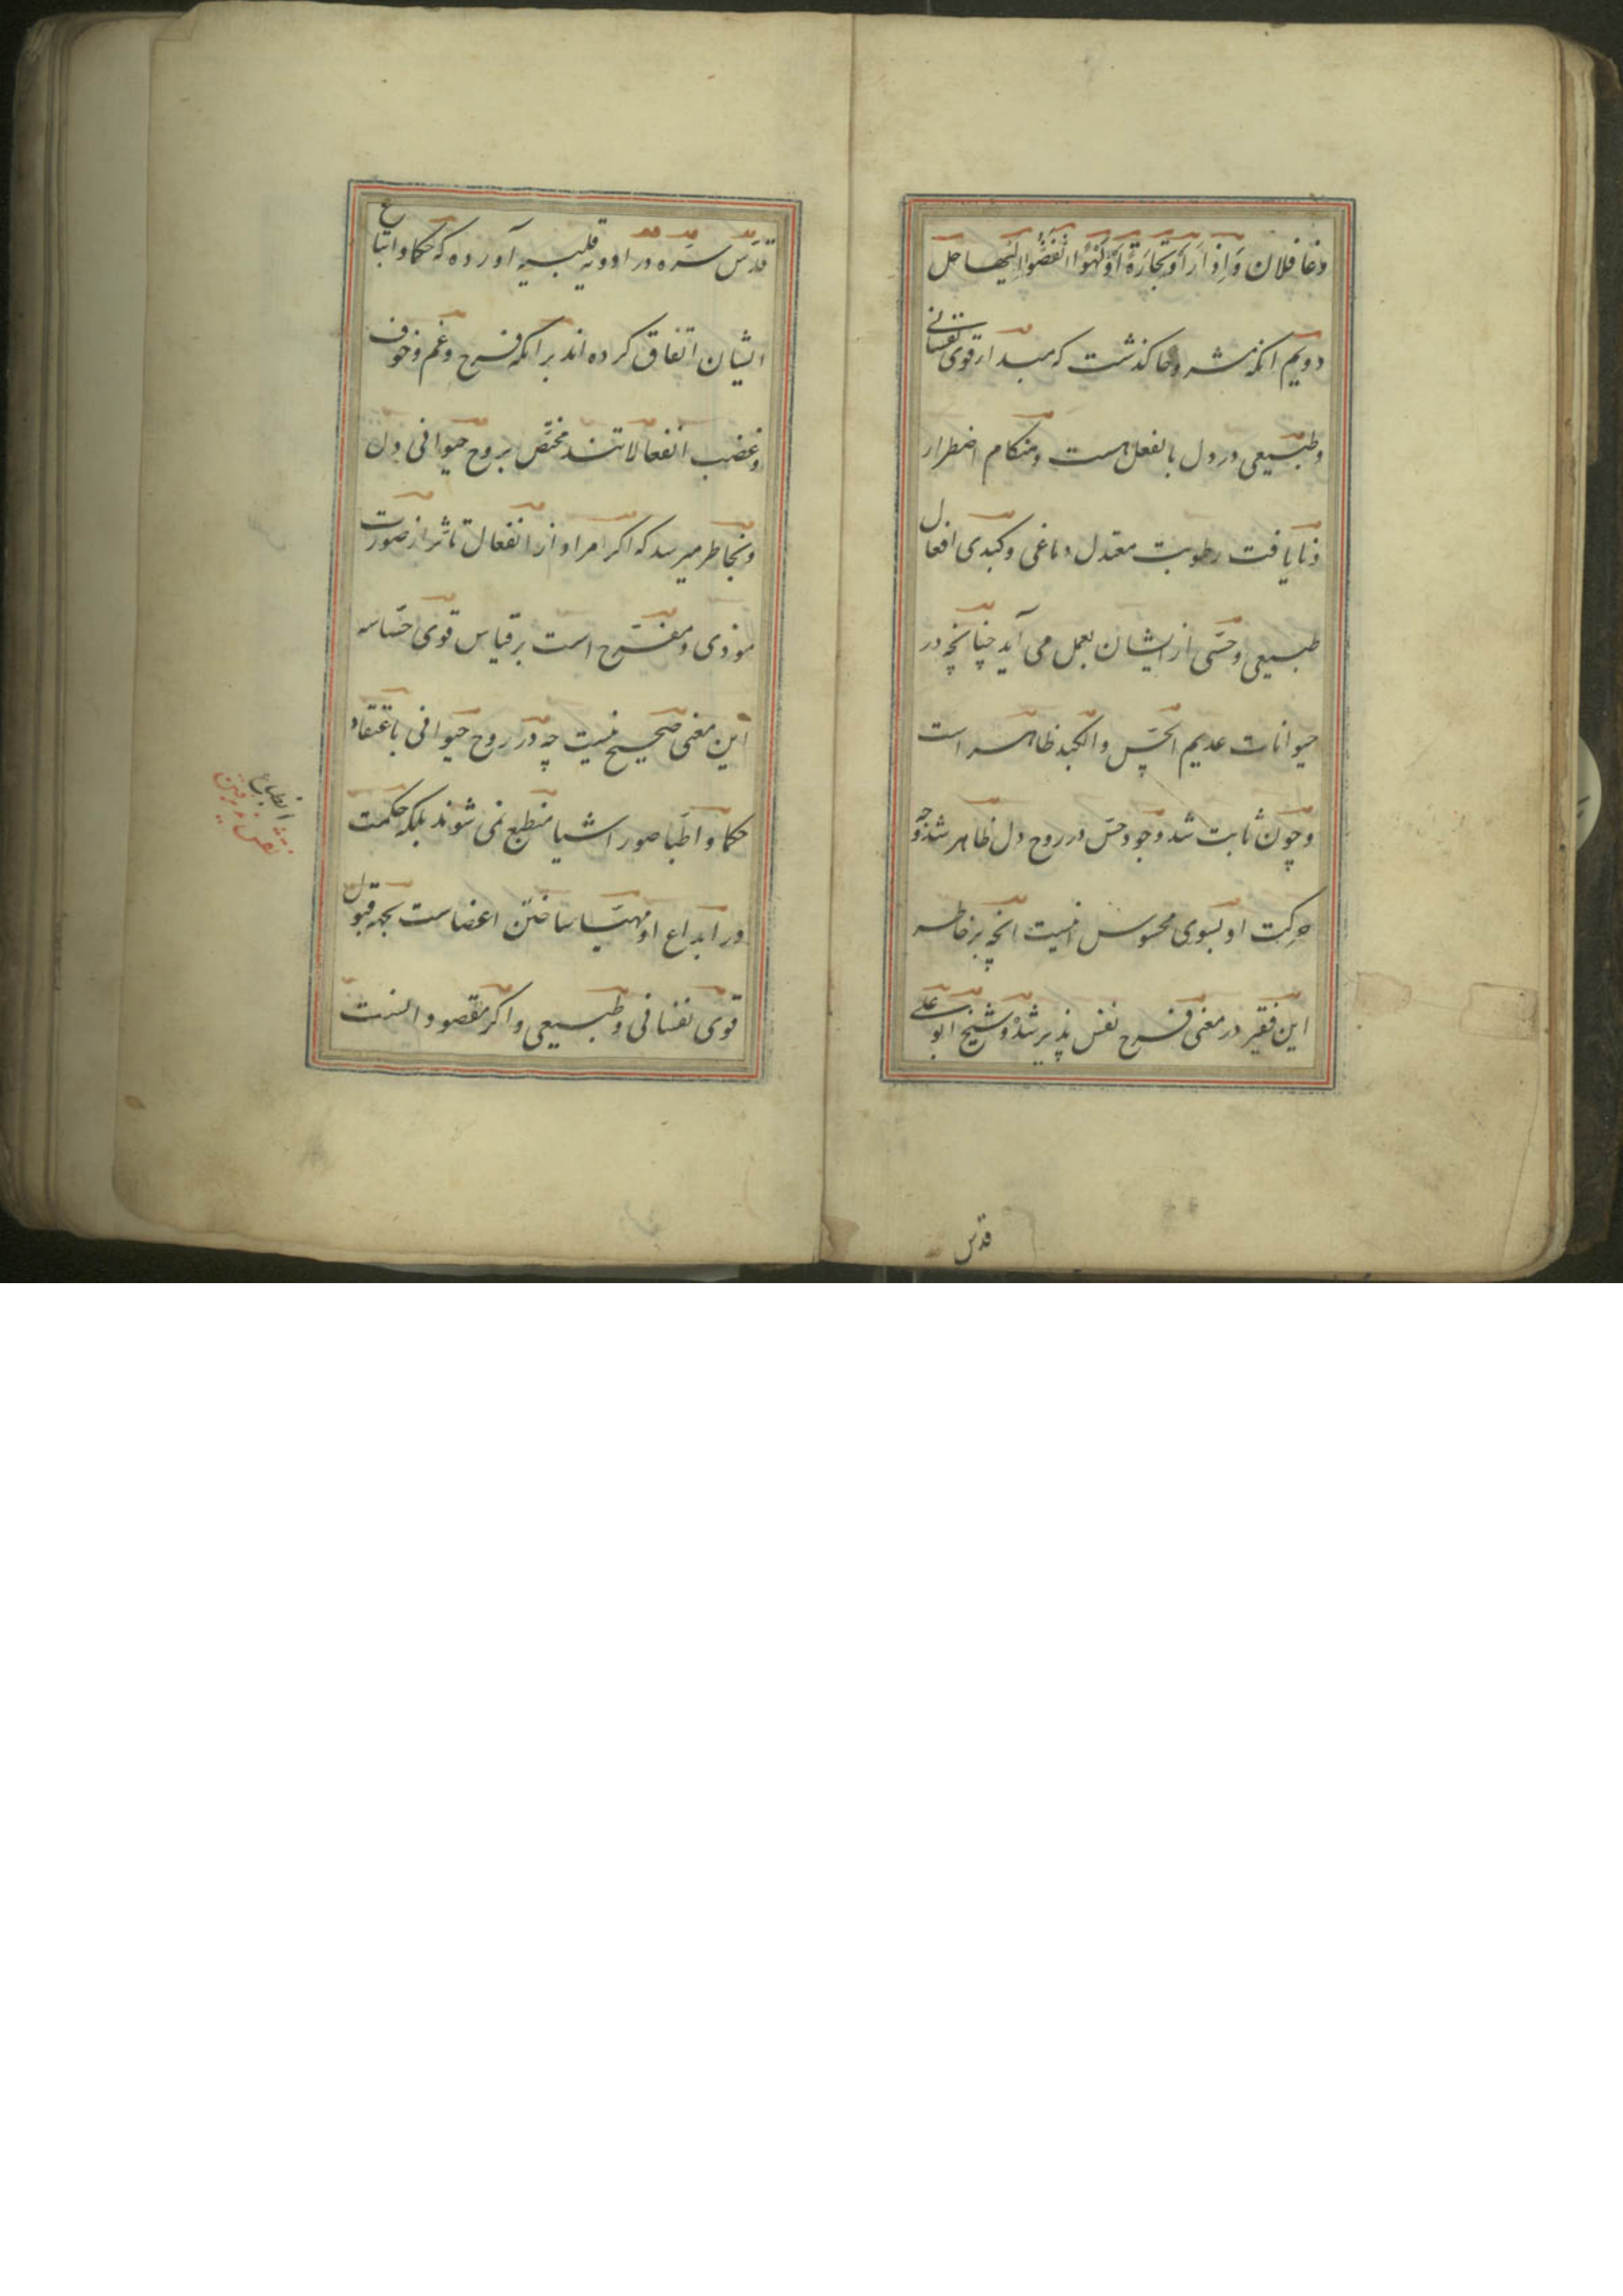 و غافلان وَاِذَا رَاَوْ تِجَارَةً اَوْ لَهْوًا انْفَضُّوا اِلَیْها حل
دویم انکه مشروحا کذشت که مبدا از قوی نفسانی
و طبیعی در دل بالفعل هست و هنکام اضطرار
و نایافت رطوبت معتدل دماغی و کبدی افعال
طبیعی و حسّی از ایشان بعمل می آید چنانچه در
حیوانات عدیم الحسّ والکبد ظاهر است
و چون ثابت شد وجود حسّ در روح دل ظاهر شد وجه
حرکت او بسوی محسوس اینست انچه بر خاطر
این فقیر در معنی فرح نقش پذیر شده و شیخ ابو علی
قدّس
قدّس سرّه در ادویه قلبیه آورده که حکما و اتباع
ایشان اتفاق کرده اند بر انکه فرح و غم و خوف
و غضب انفعالاتند مختصّ بروح حیوانی دل
و بخاطر میرسد که اکر مراد از انفعال تاثر از صورت
موذی و مفرّح است بر قیاس قوی حسّاسه
این معنی صحیح نیست چه در روح حیوانی باعتقاد
حکما و اطبّا صور اشیا منطبع نمی شوند بلکه حکمت
در ابداع او مهیّا ساختن اعضاست بجهه قبول
قوی نفسانی و طبیعی و اکر مقصود النست
انطباع
نقش